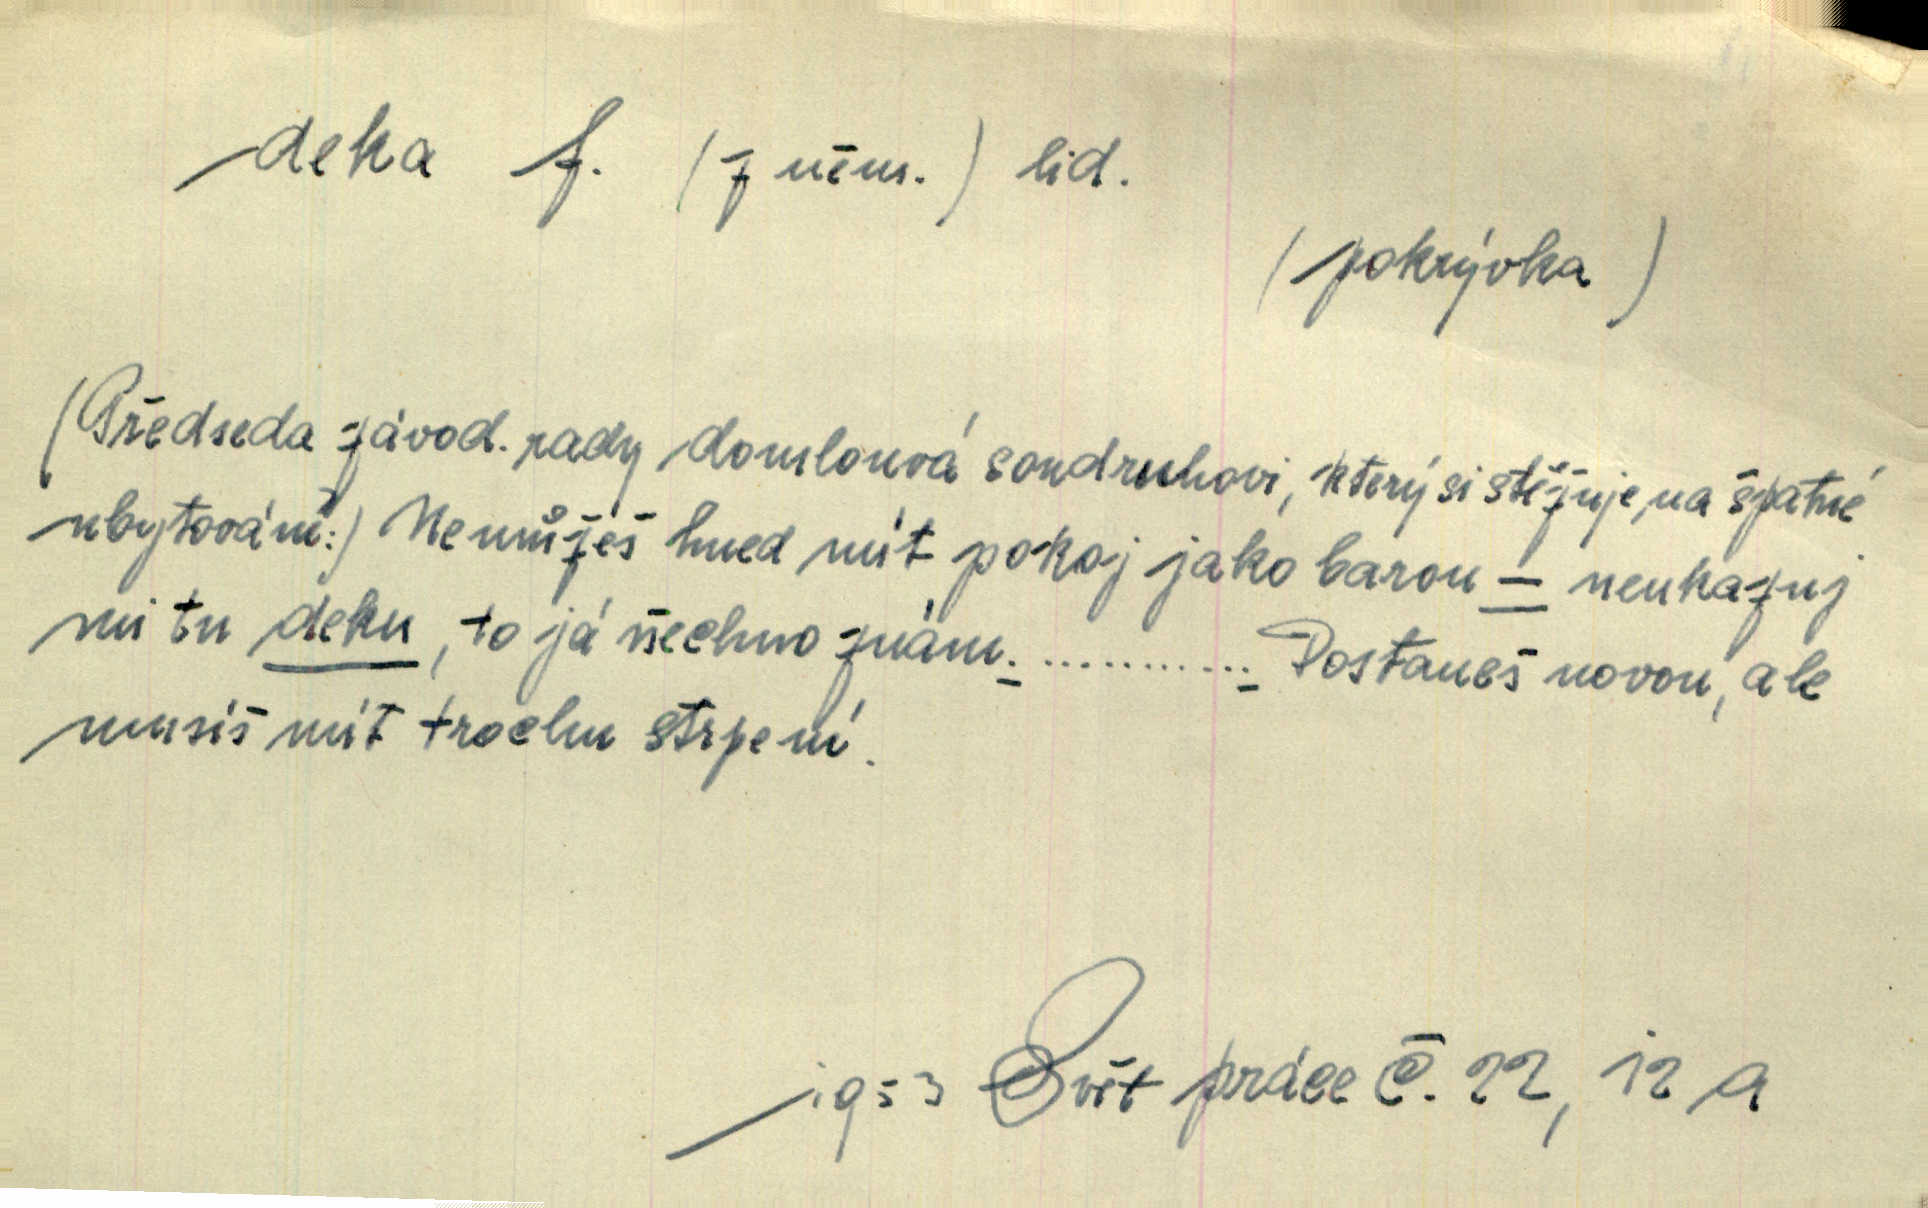 deka f. (z něm.) lid.
(pokrývka)
(Předseda závod. rady domlouvá soudruhovi, který si stěžuje na špatné
ubytování:) Nemůžeš hned mít pokoj jako baron – neukazuj
mi tu deku, to já všechno znám. ............ Dostaneš novou, ale
musíš mít trochu strpení.
1953 Svět práce č. 22, 12 a